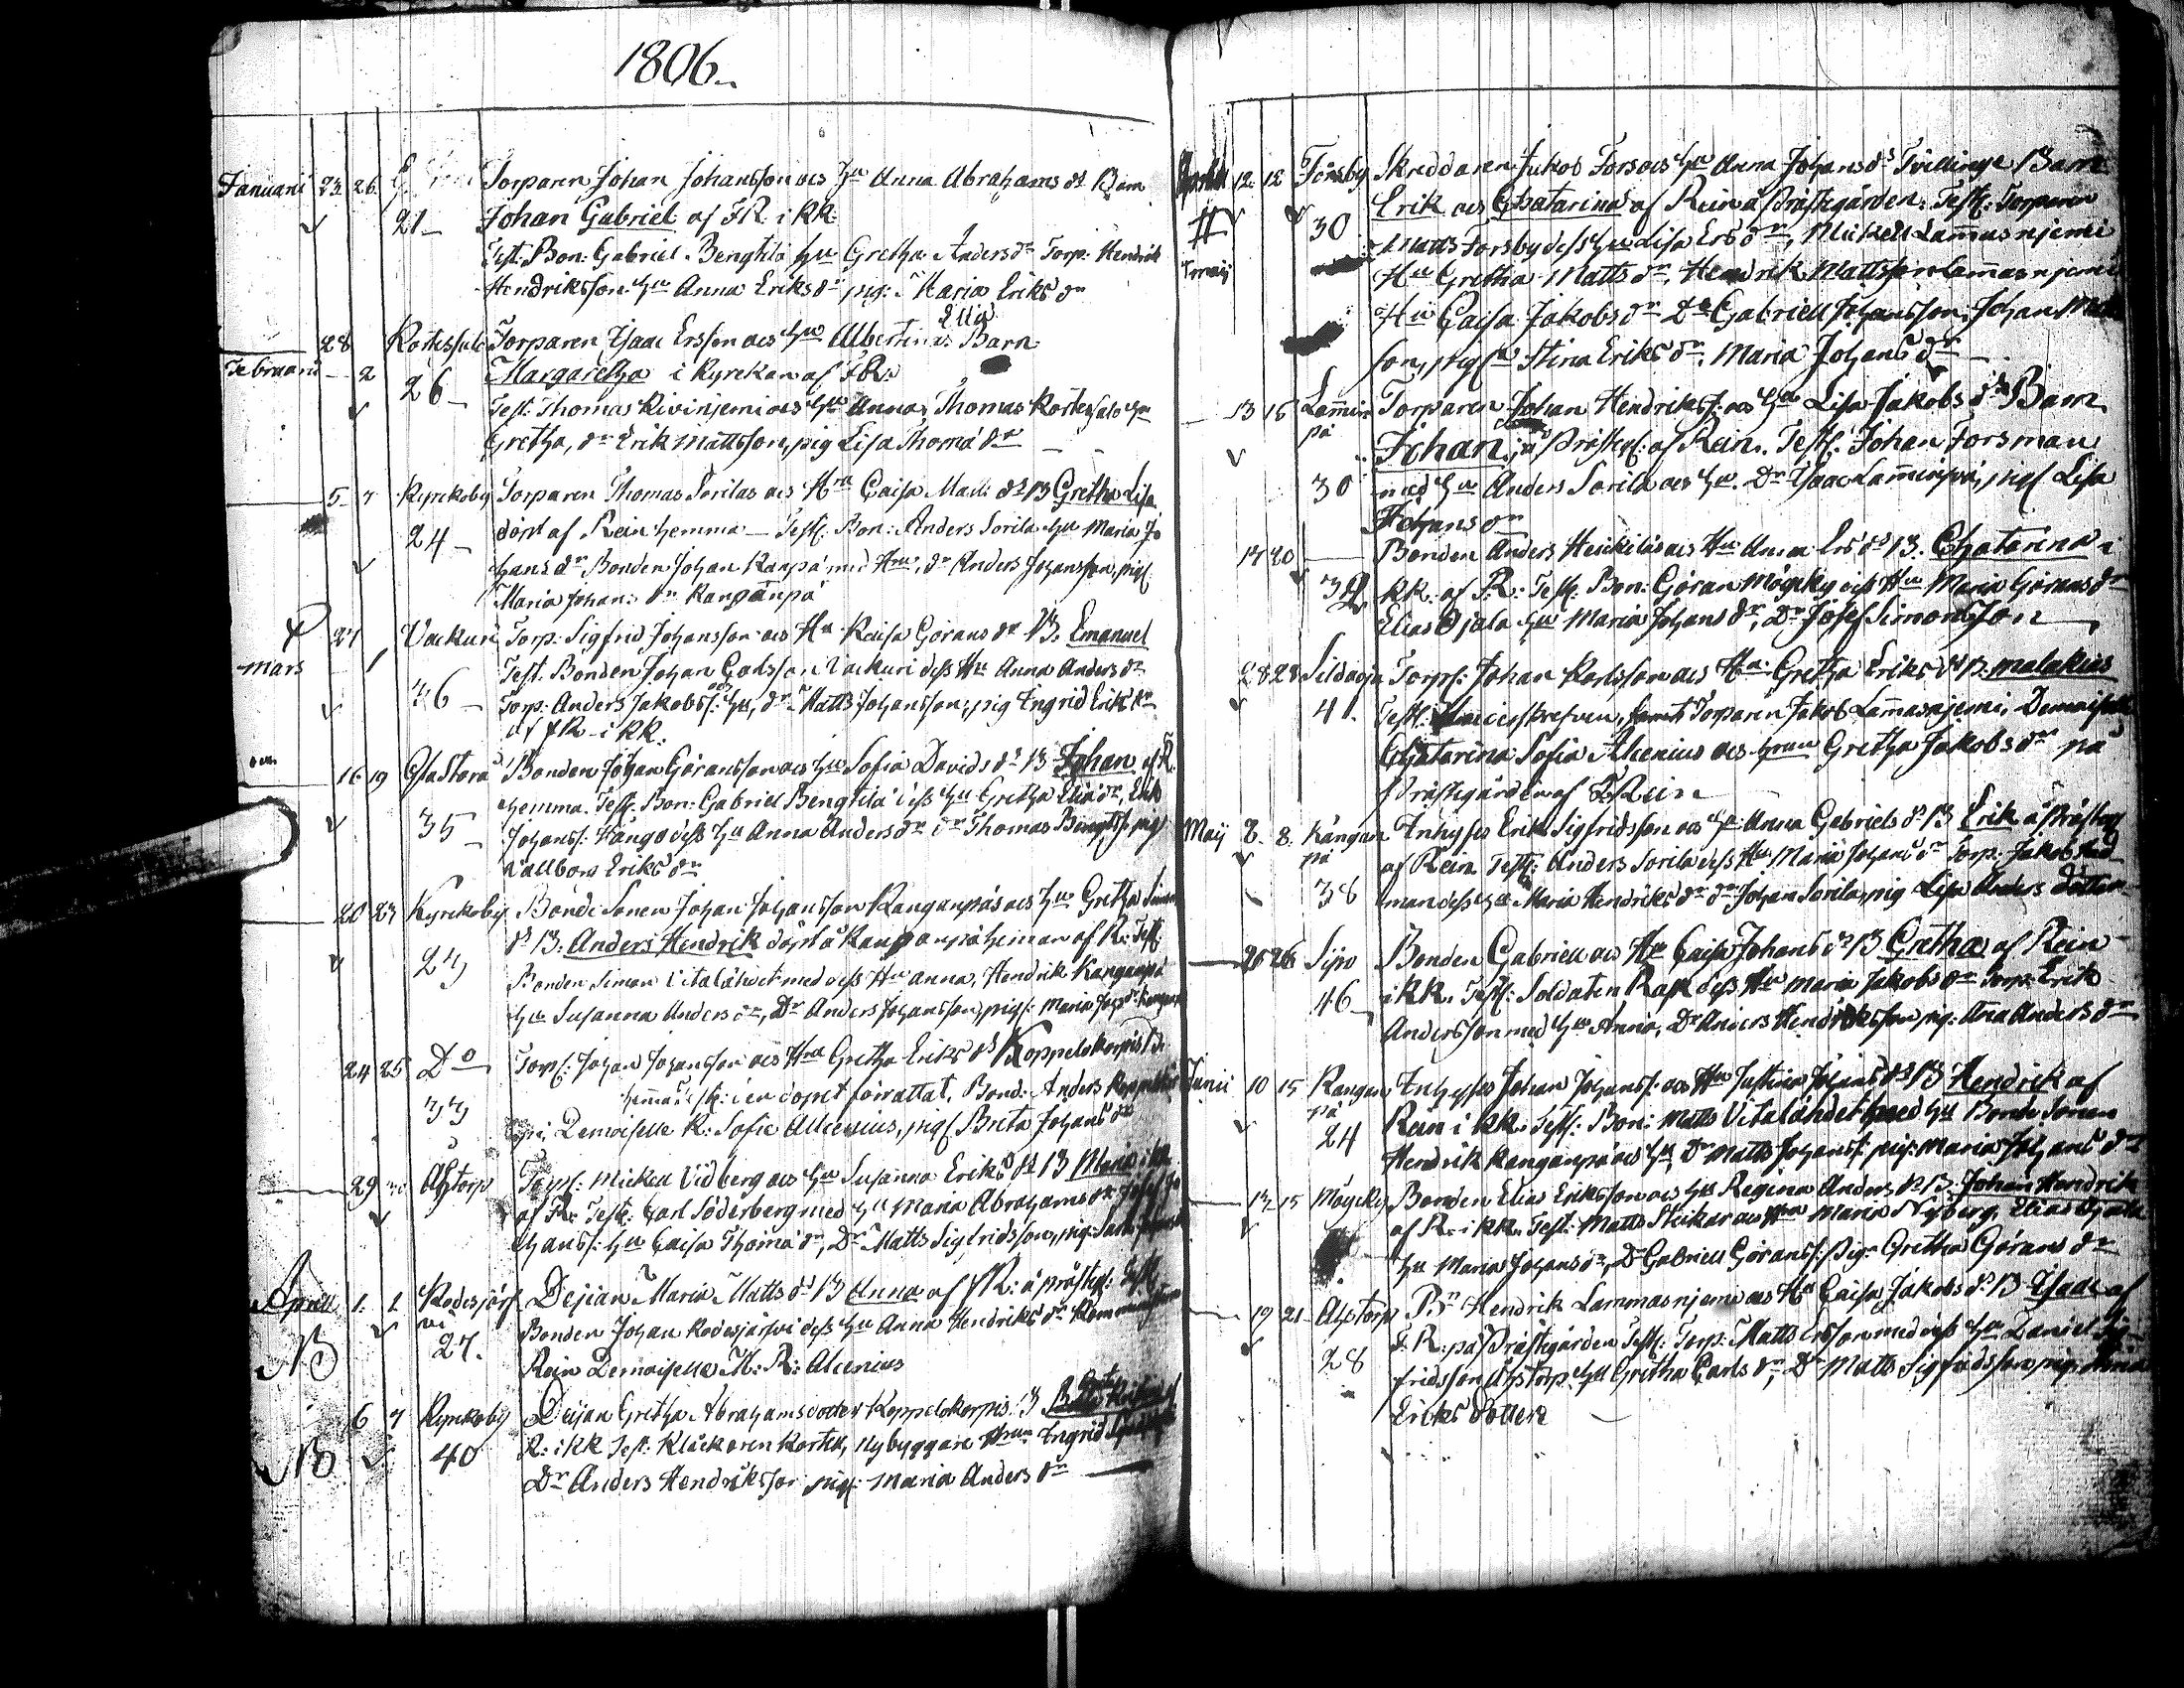 1806.
Januarii 23. 26. Torparen Johan Johansson och Hu Anna Abrahams dr Barn
21 Johan Gabriel af FR i KK
Test: Bon: Gabriel Bengtilä Hu Gretha Anders dr Torp: Hendrik
Hendriksson Hu Anna Eriks dr pig: Maria Eriks dr
28 Kortessalo Torparen Isaac Ersson och Hu Albertinas Barn
Februarii 2 26 Margaretha i Kyrckan af FR:
Test: Thomas Kivinjemi och Hu Anna, Thomas Kortessalo Hu
Gretha, dr Erik Mattsson, pig Lisa Thomä dr
5 7 Kyrckoby Torparen Thomas Sorilas och Hru Caisa Matts dr B Gretha Lisa
24 döpt af Rein hemma Test: Bon: Anders Sorila Hu Maria Jo
hans dr Bonden Johan Kanpä med Hru, dr Anders Johansson, pig:
Maria Johan: dr Kangánpä
27 Vackuri Torp: Sigfrid Johansson och Hu Kaisa Görans dr B. Emanuel
mars 1 Test: Bonden Johan Vackuri dess Hu Anna Anders dr
36 Torp: Anders Jakobss: Hu, dr Matts Johansson, pig Ingrid Erik dr
af FR i KK.
16 19 Bonden Johan Göransson och Hu Sofia Davids dr B Johan af R.
hemma. Test: Bon: Gabriel Bengtilä dess Hu Gretha Eliä dr, Erik
35 Johanss: Hångo dess Hu Anna Anders dr dr Thomas Bengts: pig:
Vallborg Eriks dr
20 23 Kyrckoby Bonde Sonen Johan Johansson Kanganpäs och Hu Gretha
dr B. Anders Hendrik döpt å Kanganpä heman af R: Test:
29 Bonden Simon Vitalähdet med dess Hu Anna, Hendrik Kanganpä
Hu Susanna Anders dr, Dr Anders Johansson, pig: Maria
24 25 Do Torp: Johan Johansson och Hru Gretha Eriks dr Koppelokorpis
33 i en döpet förrättat, Bond: Anders
Demoiselle K: Sofie Alcenius, pig: Brita Johans dr
29 Åhstorp Torp: Mickel Vidberg och Hu Susanna Eriks dr B Maria i KK
af R: Test: Carl Söderberg med Hu Maria Abrahams dr
hanss: Hu Caisa Thomä dr, Dr Matts Sigfridsson, pig:
Aprill 1. 1 Kodesjärf Dejian Maria Matts dr B Anna af FR: å prästg: Test:
vi NB 27. Bonden Johan Kodesjärfvi dess Hu Anna Hendriks dr
Rein Demoiselle M: R: Alcenius
6 7 Kyrckoby Dejan Gretha Abrahamsdotter Koppelokorpis: B
NB 40 R: i KK Test: Klåckaren Kortell, Nybyggare Hru Ingrid
Dr Anders Hendriksson pig: Maria Anders dr
12 12 Forsby Skreddaren Jakob Fors och Hu Anna Johans dr Tvillinge Barn
30 Erik och Chatarina af Rein å Prästegården. Test: Torparen
Matts Forsby dess Hu Lisa Ers dr, Mickel Lammasnjemi
Hu Gretha Matts dr, Hendrik Mattsson Lammasnjemi
Hu Caisa Jakobs dr Dr Gabriell Johansson, Johan
son, pig: Stina Eriks dr. Maria Johans dr
13 15 Lamin Torparen Johan Hendrikss: och Hu Lisa Jakobs dr Barn
pä Johan, å Prästeg: af Rein. Test: Johan Forsman
30 med Hu Anders Sorila och Hu. Dr Isaac Laminpä, pig: Lisa
Johans dr
17 20 Bonden Anders Heickiläs och Hu Anna Ers dr B. Chatarina i
32 KK. af R: Test: Bon: Göran Möycky dess Hu Maria Görans dr
Elias Ojala Hu Maria Johans dr, Dr Josef Simonsson
28 28 Sildoja Torp: Johan Karlsson och Hu Gretha Eriks dr B. Malakias
41 Test: samt Torparen Jakob Lammasnjemi, Demoiselle
Chatarina Sofia Alcenius och Hrun Gretha Jakobs dr på
Prästegården af FRein
Maij 8. 8. Kangan Inhyses Erik Sigfridsson och Hu Anna Gabriels dr B Erik å Prästeg:
pä af Rein Test: Anders Sorila dess Hu Maria Johans dr Torp: Jakob
38 man dess Hu Maria Hendriks dr dr Johan Sorila, pig Lisa Anders dotter
25 26 Sipo Bonden Gabriell och Hu Caisa Johans dr B Gretha af Rein
46 i KK. Test: Soldaten Rask dess Hu Maria Jakobs dr Torp: Erik
Andersson med Hu Anna, Dr Anders Hendriksson pig: Ana Anders dr
Junii 10 15 Kangan Inhyses Johan Johanss: och Hu Justina Johans dr B Hendrik af
pä Rein i KK. Test: Bon: Matts Vitalähdet med Hu Bonde Sonen
24 Hendrik Kanganpä och Hu, Dr Matts Johanss: pig: Maria Johans dr
13 15 Möycky Bonden Elias Eriksson och Hu Regina Anders dr B. Johan Hendrik
af R. i KK. Test: Matts Steikar och Hru Maria Nyberg, Elias Ojala
Hu Maria Johans dr, Dr Gabriell Göranss: Pig: Gretha Görans dr
19 21 Åhstorp Hendrik Lammasnjemi och Hu Caisa Jakobs dr B Isaac af
F. R: på Prästegården Test: Torp: Matts Ersson med dess Hu Daniel Sig
28 fridsson Åhstorp Hu Gretha Carls dr, Dr Matts Sigfridsson, pig:
Eriks dotter